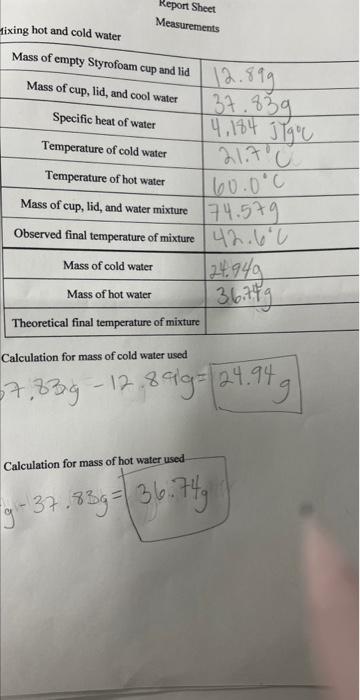 Report Sheet
Measurements
Mixing hot and cold water
Mass of empty Styrofoam cup and lid 12.89g
Mass of cup, lid, and cool water 37.83g
Specific heat of water 4.184 J/g°C
Temperature of cold water 21.7°C
Temperature of hot water 60.0°C
Mass of cup, lid, and water mixture 74.57g
Observed final temperature of mixture 42.6°C
Mass of cold water 24.94g
Mass of hot water 36.74g
Theoretical final temperature of mixture
Calculation for mass of cold water used
37.83g - 12.89g = 24.94 g
Calculation for mass of hot water used
g - 37.83g = 36.74g